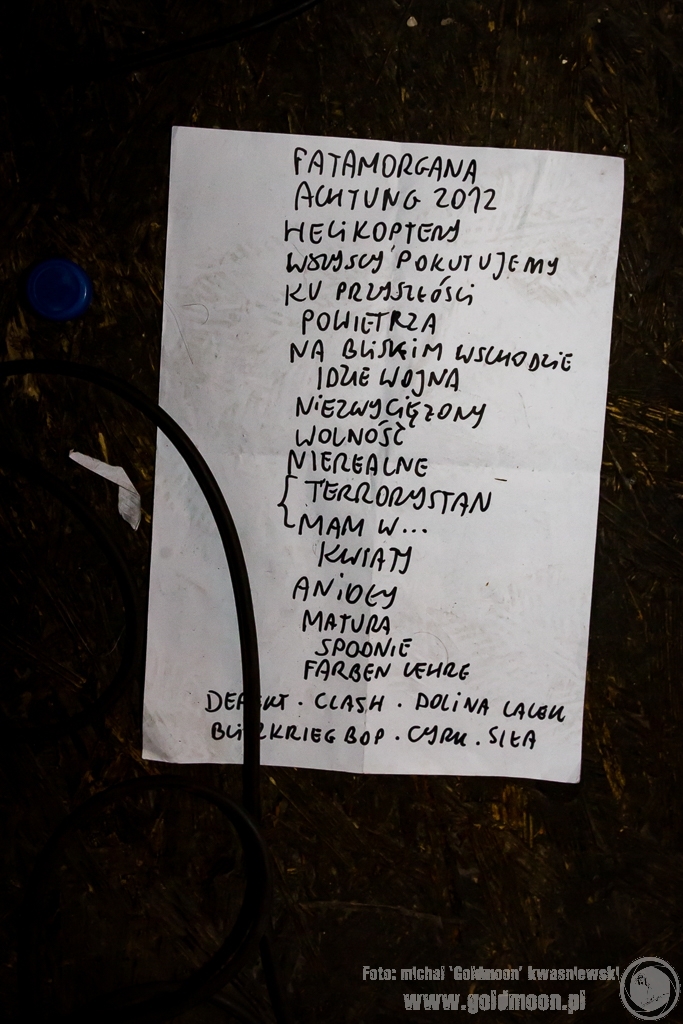 FATAMORGANA
ACHTUNG 2012
HELIKOPTERY
WSZYSCY POKUTUJEMY
KU PRZYSZŁOŚCI
POWIETRZA
NA BLISKIM WSCHODZIE
IDZIE WOJNA
NIEZWYCIĘŻONY
WOLNOŚĆ
NIEREALNE
TERRORYSTAN
MAM W...
KWIATY
ANIOŁY
MATURA
SPODNIE
FARBEN LEHRE
DEFEKT . CLASH . DOLINA LALEK
BLITZKRIEG BOP . CYRK . SIŁA
Foto: michal 'Goldmoon' kwasniewski
www.goldmoon.pl